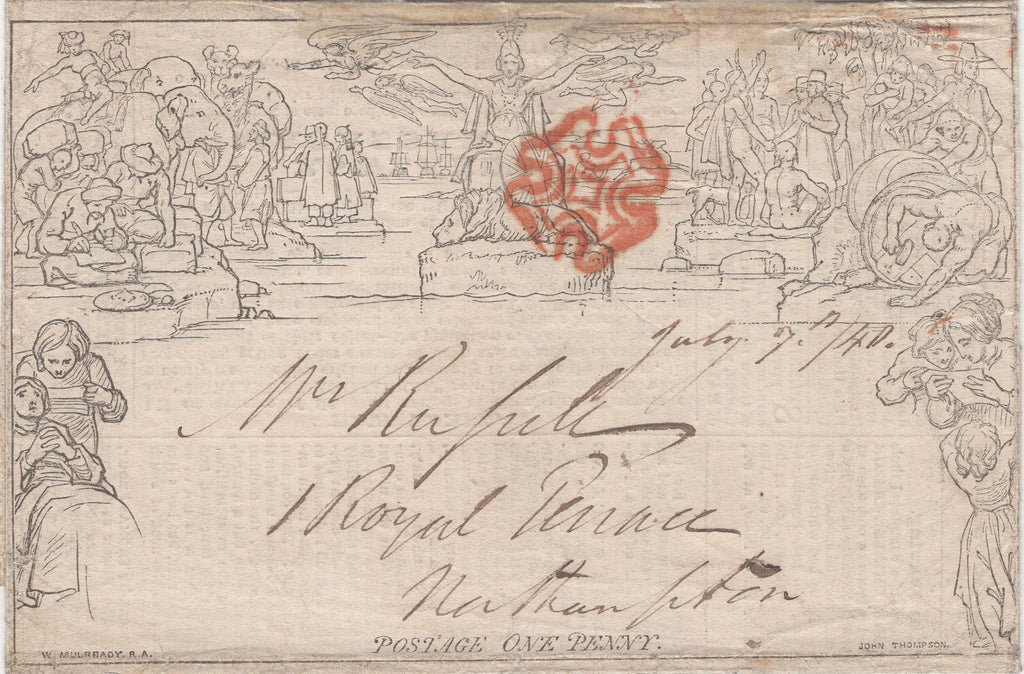 July 7th /40.
Mrs Russell
1 Royal Terrace
Northampton
POSTAGE ONE PENNY.
W. MULREADY, R.A.
JOHN THOMPSON.